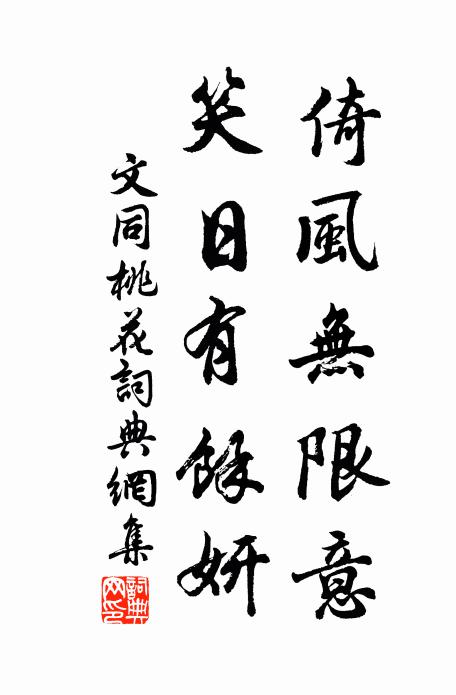 倚風無限意
笑日有餘妍
文同桃花詞典網集
詞典網印